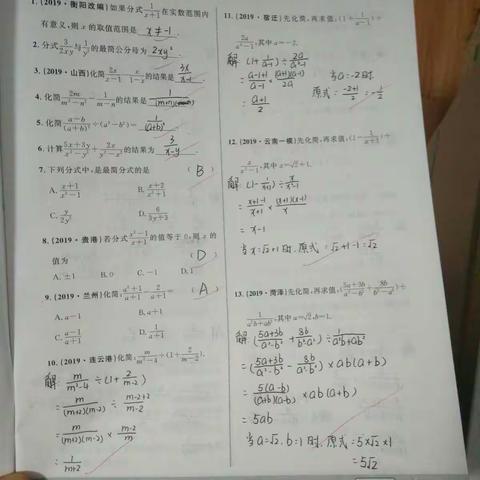 1. (2019·衡阳改编)如果分式1/(x+1)在实数范围内
有意义,则x的取值范围是 x≠-1
2. 分式3/(2xy)与1/y²的最简公分母为 2xy²
3. (2019·山西)化简 2x/(x-1) - x/(1-x)的结果是 3x/(x-1)
4. 化简 2m/(m²-n²) - 1/(m-n)的结果是
5. 化简 (a-b)/(a+b)² ÷(a²-b²)= 1/(a+b)³
6. 计算 (5x+3y)/(x²-y²) - 2x/(x²-y²)的结果为 3/(x-y)
7. 下列分式中,是最简分式的是 ( B )
A. (x+1)/(x²-1) B. (x+2)/(x²+1)
C. y/(2y²) D. 6/(3y+3)
8. (2019·贵港)若分式(x²-1)/(x+1)的值等于0,则x的
值为 ( D )
A. ±1 B. 0 C. -1 D. 1
9. (2019·兰州)化简: (a²+1)/(a+1) - 2/(a+1)= ( A )
A. a-1 B. a+1
C. (a-1)/(a+1) D. 1/(a+1)
10. (2019·连云港)化简: m/(m²-4) ÷(1+2/(m-2)).
解: m/(m²-4) ÷(1+2/(m-2))
= m/((m+2)(m-2)) ÷ (m-2+2)/(m-2)
= m/((m+2)(m-2)) × (m-2)/m
= 1/(m+2)
11. (2019·宿迁)先化简,再求值:(1+1/(a-1))÷
2a/(a²-1),其中a=-2.
解: (1+1/(a-1))÷2a/(a²-1)
= (a-1+1)/(a-1) × (a+1)(a-1)/2a 当a=-2时
= (a+1)/2 原式=(-2+1)/2=-1/2
12. (2019·云南一模)先化简,再求值:(1-1/(x+1))÷
x/(x²-1),其中x=√2+1.
解: (1-1/(x+1))÷x/(x²-1)
= (x+1-1)/(x+1) × (x+1)(x-1)/x
= x-1
当x=√2+1时,原式=√2+1-1=√2
13. (2019·菏泽)先化简,再求值:((5a+3b)/(a²-b²)+8b/(b²-a²))÷
1/(a²b+ab²),其中a=√2,b=1.
解: ((5a+3b)/(a²-b²)+8b/(b²-a²))÷1/(a²b+ab²)
= ((5a+3b)/(a²-b²)-8b/(a²-b²))×ab(a+b)
= 5(a-b)/((a+b)(a-b))×ab(a+b)
= 5ab
当a=√2,b=1时,原式=5×√2×1
=5√2